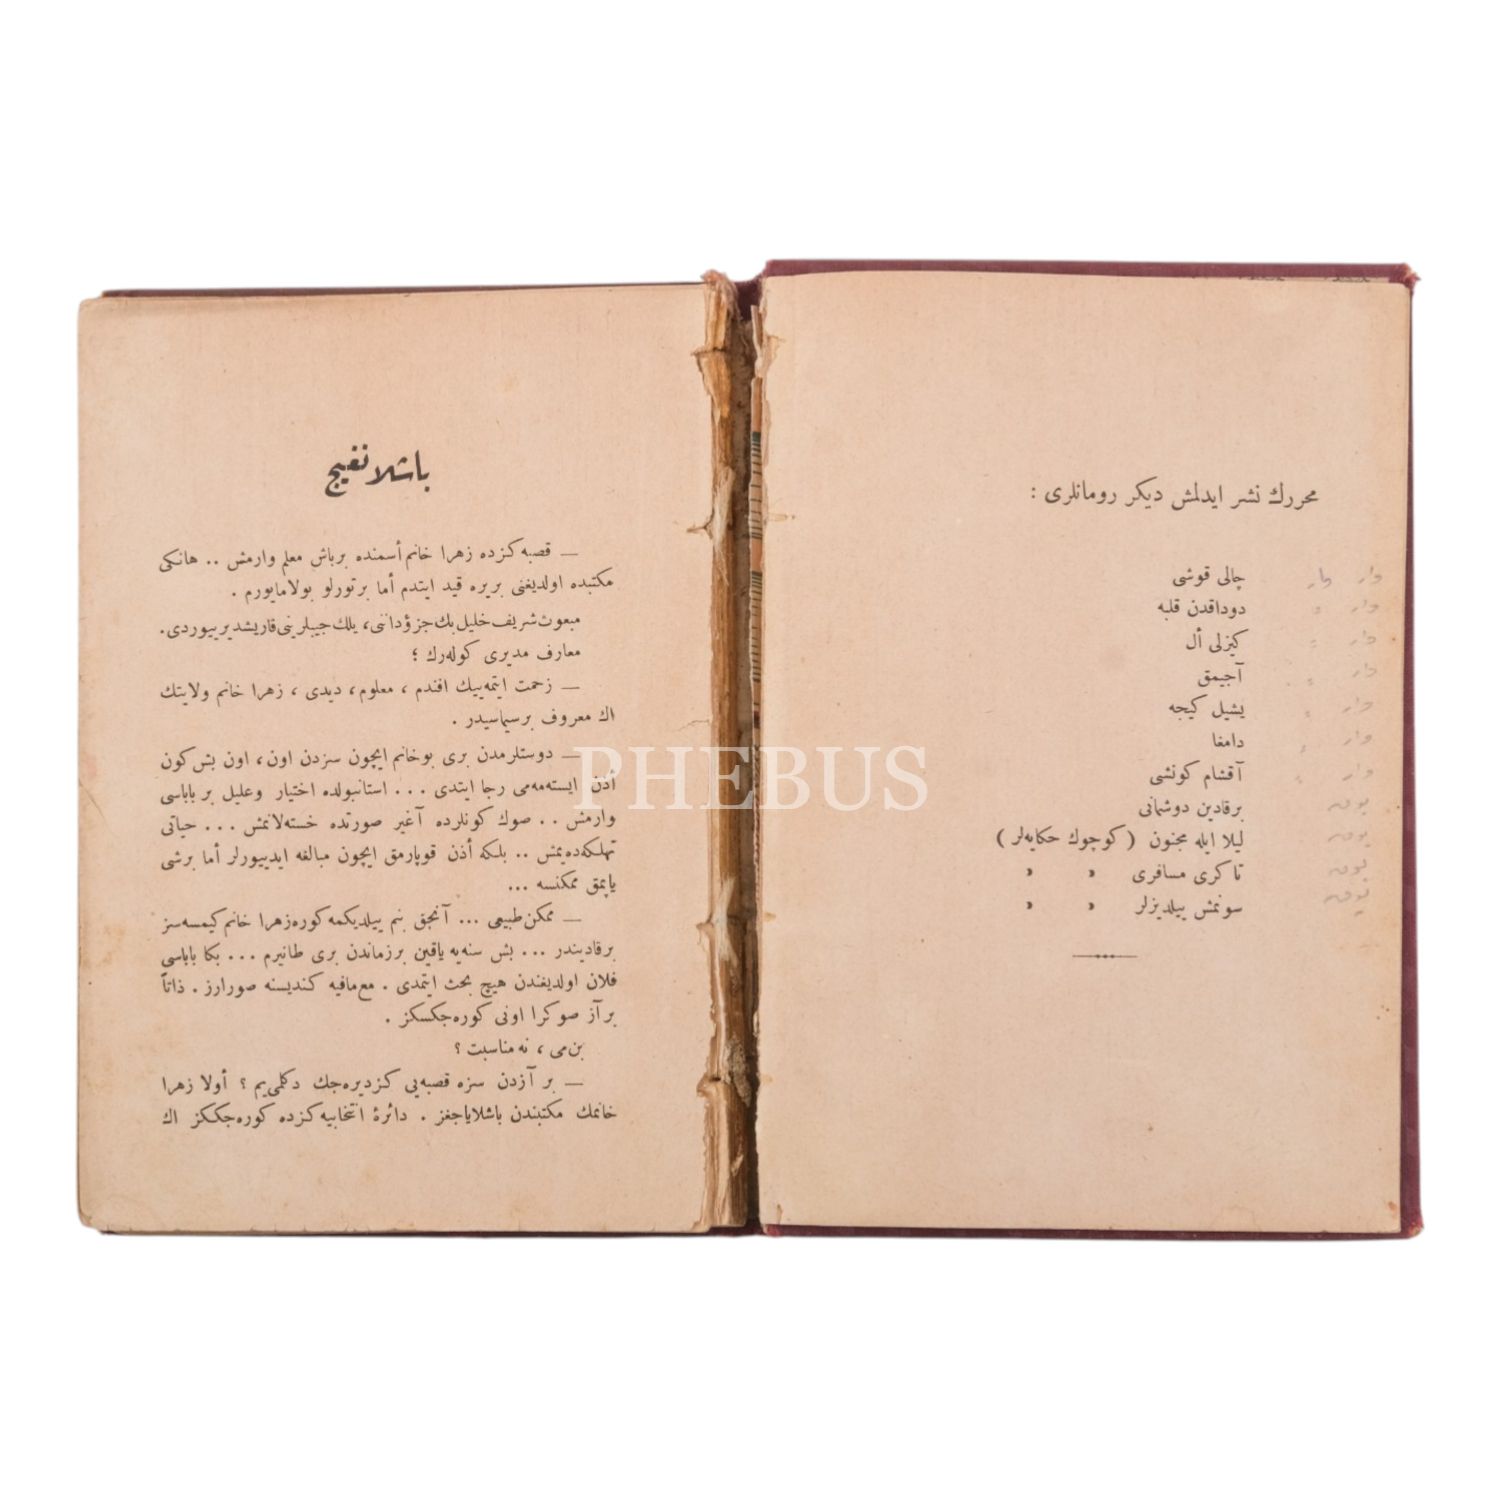 محررك نشر ايدلمش ديكر رومانلرى :
چالى قوشى
دوداقدن قلبه
كيزلى أل
آجيمق
يشيل كيجه
دامغا
آقشام كونشى
برقادين دوشمانى
ليلا ايله مجنون ( كوچوك حكايه‌لر )
تاكرى مسافرى » »
سونمش ييلديزلر » »
وار وار
وار »
وار »
وار »
وار »
وار »
وار »
يوق
يوق
يوق
يوق
باشلانغيچ
— قصبه‌كزده زهرا خانم أسمنده برباش معلم وارمش .. هانكى
مكتبده اولديغنى بريره قيد ايتدم أما برتورلو بولامايورم .
مبعوث شريف خليل بك جزؤداننى ، يلك جيبلرينى قاريشديرييوردى.
معارف مديرى كوله‌رك ؛
— زحمت ايتمه‌ييك افندم ، معلوم ، ديدى ، زهرا خانم ولايتك
اك معروف برسيماسيدر .
— دوستلرمدن برى بوخانم ايچون سزدن اون ، اون بش كون
أذن ايسته‌مه‌مى رجا ايتدى ... استانبولده اختيار وعليل برباباسى
وارمش .. صوك كونلرده آغير صورتده خسته‌لانمش ... حياتى
تهلكه‌ده‌يمش .. بلكه أذن قوپارمق ايچون مبالغه ايدييورلر أما برشى
ياپمق ممكنسه ...
— ممكن طبيعى ... آنجق بنم بيلديكمه كوره زهرا خانم كيمسه‌سز
برقاديندر ... بش سنه‌يه ياقين برزماندن برى طانيرم ... بكا باباسى
فلان اولديغندن هيچ بحث ايتمدى . مع‌مافيه كنديسنه صورارز . ذاتاً
برآز صوكرا اونى كوره‌جكسكز .
بن‌مى ، نه مناسبت ؟
— بر آزدن سزه قصبه‌يى كزديره‌جك دكلمى‌يم ؟ أولا زهرا
خانمك مكتبندن باشلاياجغز . دائرۀ انتخابيه‌كزده كوره‌جككز اك
PHEBUS